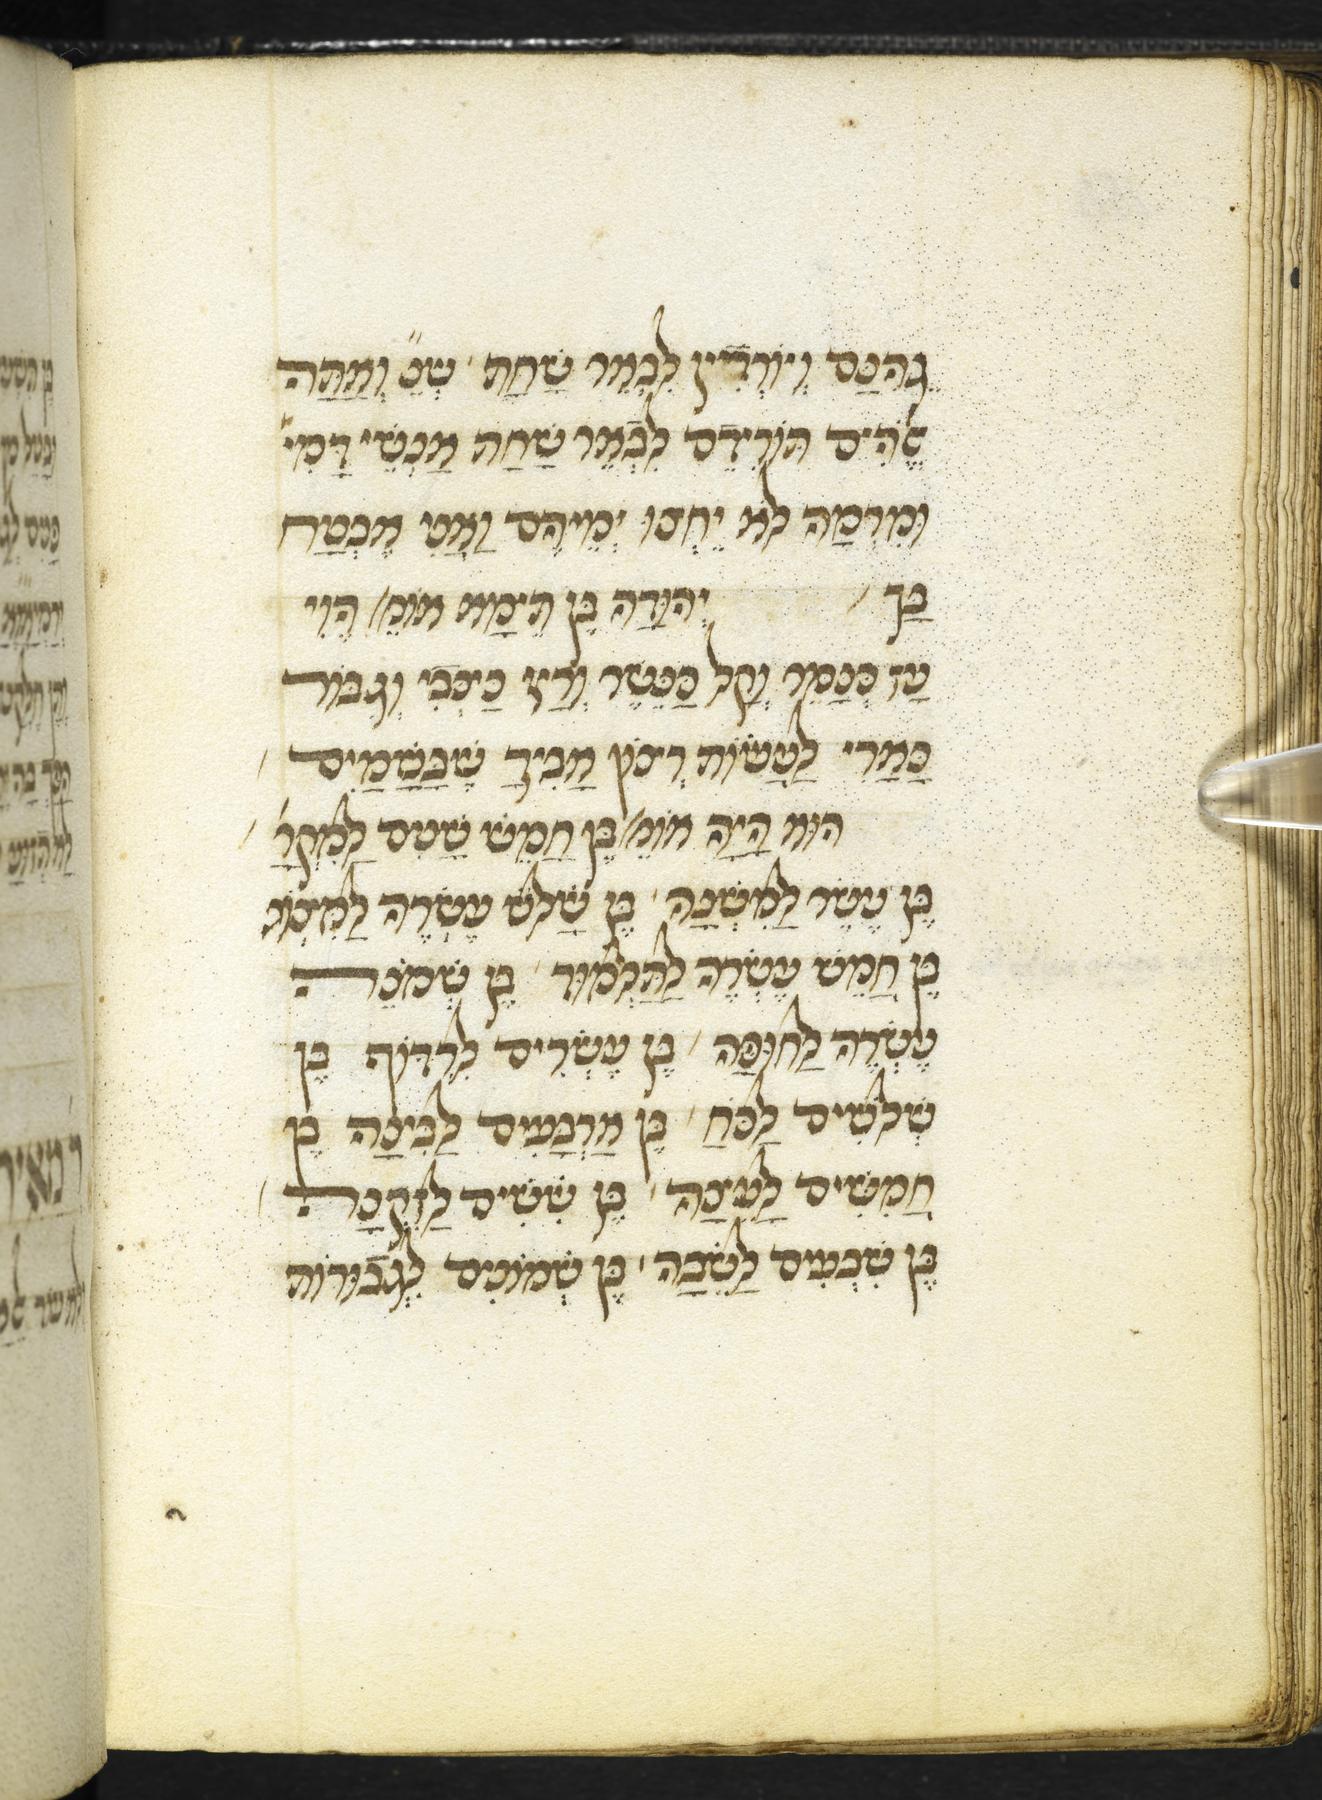 גֵהִנָּם וְיוֹרְדִין לִבְאֵר שַׁחַת ׳ שֶׁנֶּ״ וְאַתָּה
אֱלֹהִים תּוֹרִידֵם לִבְאֵר שַׁחַת אַנְשֵׁי דָמִי״
וּמִרְמָה לֹא יֶחְצוּ יְמֵיהֶם וַאֲנִי אֶבְטַח
בָּךְ / יְהוּדָה בֶּן תֵּימָא אוֹמֵ/ הֱוֵי
עַז כַּנָּמֵר וְקַל כַּנֶּשֶׁר וְרָץ כַּצְּבִי וְגִבּוֹר
כָּאֲרִי לַעֲשׂוֹת רְצוֹן אָבִיךָ שֶׁבַּשָּׁמַיִם /
הוּא הָיָה אוֹמֵ/ בֶּן חָמֵשׁ שָׁנִים לַמִּקְרָ׳ /
בֶּן עֶשֶׂר לַמִּשְׁנָה ׳ בֶּן שְׁלֹשׁ עֶשְׂרֵה לַמִּיצְוֹת
בֶּן חֲמֵשׁ עֶשְׂרֵה לַתַּלְמוּד ׳ בֶּן שְׁמֹנֶה
עֶשְׂרֵה לַחוּפָּה / בֶּן עֶשְׂרִים לִרְדּוֹף בֶּן
שְׁלֹשִׁים לַכֹּחַ ׳ בֶּן אַרְבָּעִים לַבִּינָה בֶּן
חֲמִשִּׁים לָעֵיצָה ׳ בֶּן שִׁשִּׁים לַזִּקְנָה /
בֶּן שִׁבְעִים לַשֵּׂבָה ׳ בֶּן שְׁמוֹנִים לַגְּבוּרוֹת
ר׳ מֵאִיר